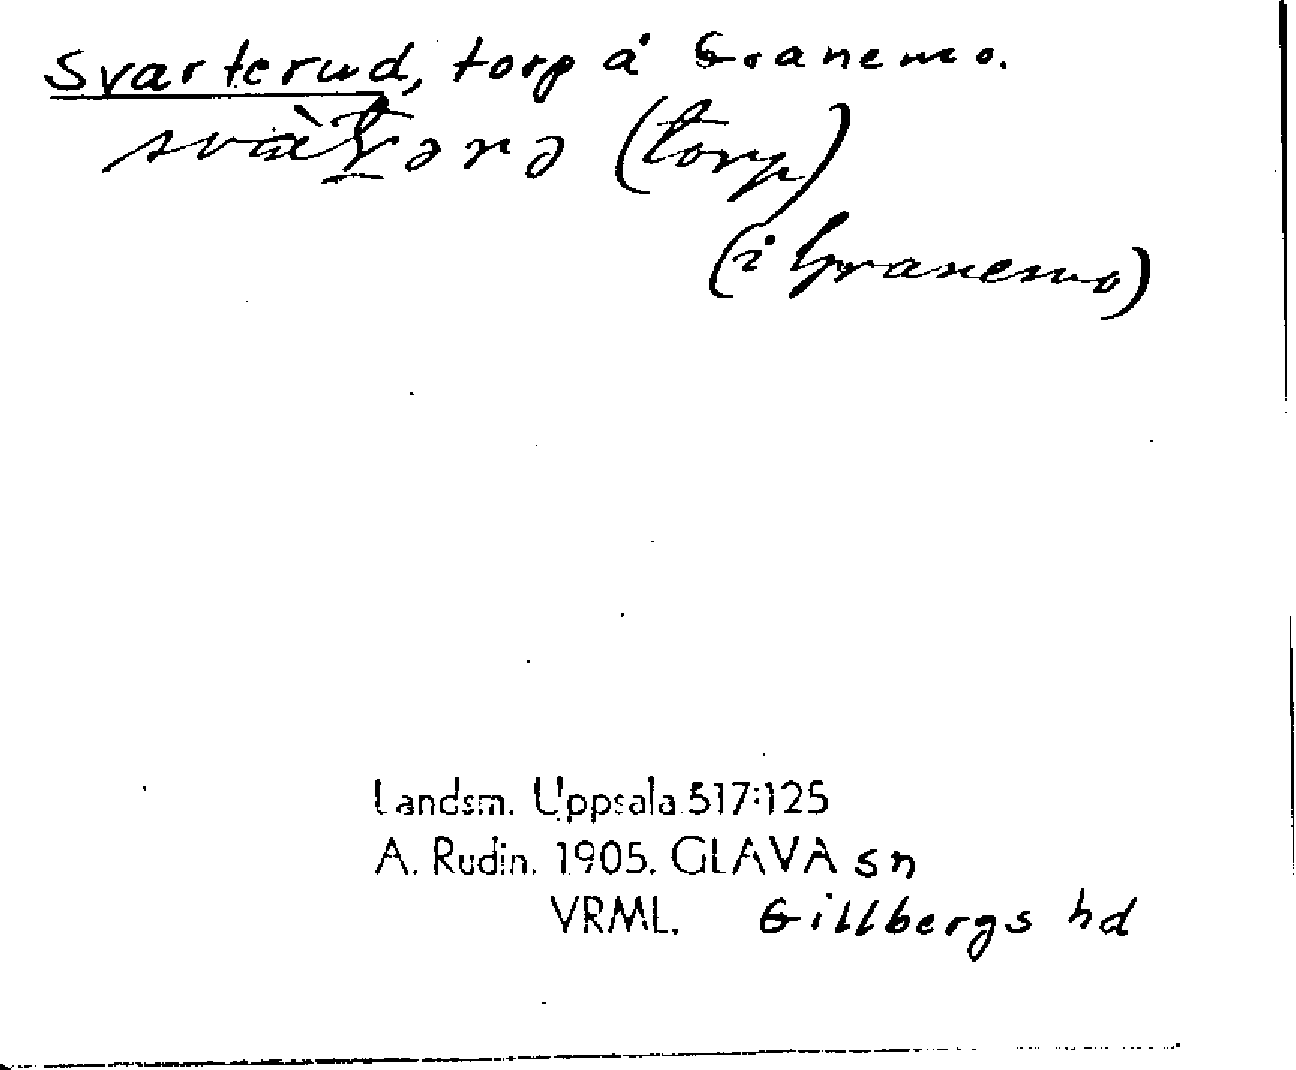 Svarterud, torp å Granemo.
svàt̠ərə (torp)
(i Granemo)
Landsm. Uppsala 517:125
A. Rudin. 1905. GLAVA sn
VRML. Gillbergs hd